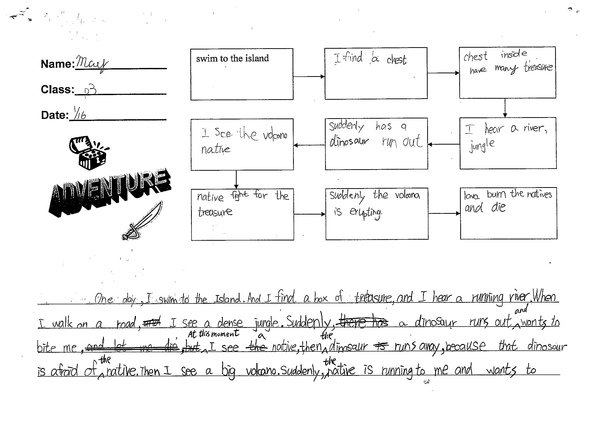 Name: May
Class: p3
Date: 1/16
ADVENTURE
swim to the island
I find a chest
chest inside
have many treasure
I hear a river,
jungle
Suddenly has a
dinosaur run out
I see the volcano
native
native fight for the
treasure
Suddenly the volcano
is erupting
lava burn the natives
and die
One day, I swim to the Island. And I find a box of treasure, and I hear a running river. When
I walk on a road, and I see a dense jungle. Suddenly, there has a dinosaur runs out, and wants to
bite me, and let me die, but At this moment, I see the a native, then the dinosaur is runs away, because that dinosaur
is afraid of the native. Then I see a big volcano. Suddenly, the native is running to me and wants to